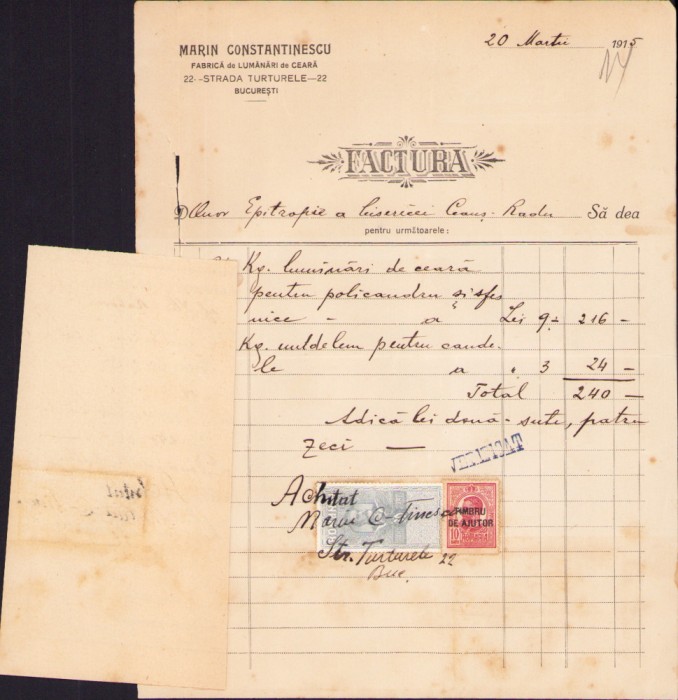 20 Martie 1915
MARIN CONSTANTINESCU
FABRICĂ de LUMÂNĂRI de CEARĂ
22--STRADA TURTURELE—22
BUCUREȘTI
FACTURA
D Onor Epitropie a bisericei Ceauș-Radu Să dea
pentru următoarele:
Kg. luminări de ceară
pentru policandru și sfeș
nice - a Lei 9- 216 -
Kg. untdelem pentru cande-
le a " 3 24 -
Total 240 -
Adică lei două-sute, patru
zeci —
VERIFICAT
Achitat
Marin C-tinescu
Str. Turturele 22
Buc.
TIMBRU
DE AJUTOR
10